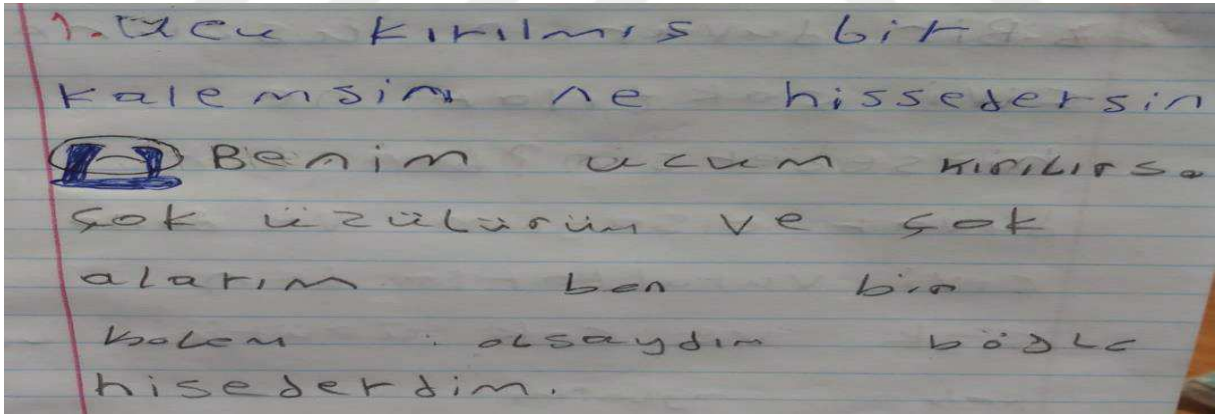 1. Ucu kırılmış bir
kalemsin ne hissedersin
Benim ucum kırılırsa
çok üzülürüm ve çok
alarım ben bir
kalem olsaydım böyle
hisederdim.